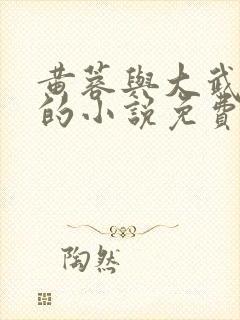 黄蓉與大武
的小說免費
陶然